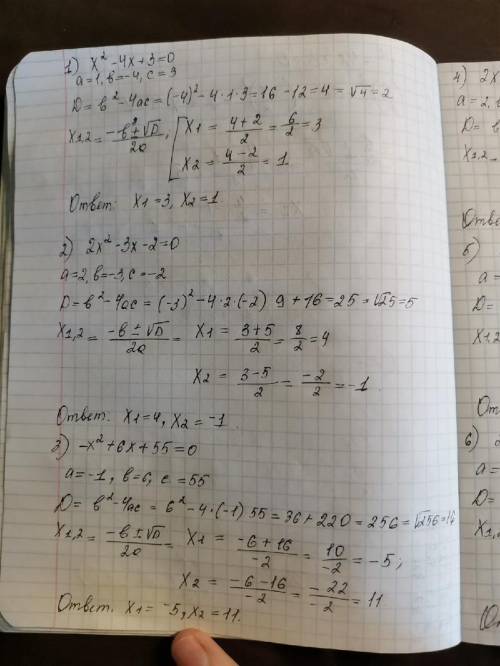 1) x² - 4x + 3 = 0
a = 1, в = -4, c = 3
D = в² - 4ac = (-4)² - 4·1·3 = 16 - 12 = 4 = √4 = 2
x1,2 = (-в ± √D)/2a, [x1 = (4+2)/2 = 6/2 = 3
x2 = (4-2)/2 = 1.
Ответ: x1 = 3, x2 = 1
2) 2x² - 3x - 2 = 0
a = 2, в = -3, c = -2
D = в² - 4ac = (-3)² - 4·2·(-2) 9 + 16 = 25 = √25 = 5
x1,2 = (-в ± √D)/2a = x1 = (3+5)/2 = 8/2 = 4
x2 = (3-5)/2 = -2/2 = -1.
Ответ: x1 = 4, x2 = -1.
3) -x² + 6x + 55 = 0
a = -1, в = 6, c = 55
D = в² - 4ac = 6² - 4·(-1) 55 = 36 + 220 = 256 = √256 = 16
x1,2 = (-в ± √D)/2a = x1 = (-6+16)/-2 = 10/-2 = -5;
x2 = (-6-16)/-2 = -22/-2 = 11
Ответ. x1 = -5, x2 = 11.
4) 2x
a = 2,
D =
x1,2 =
Ответ
5)
a =
D =
x1,2
От
6)
a =
D =
x1,2
(От